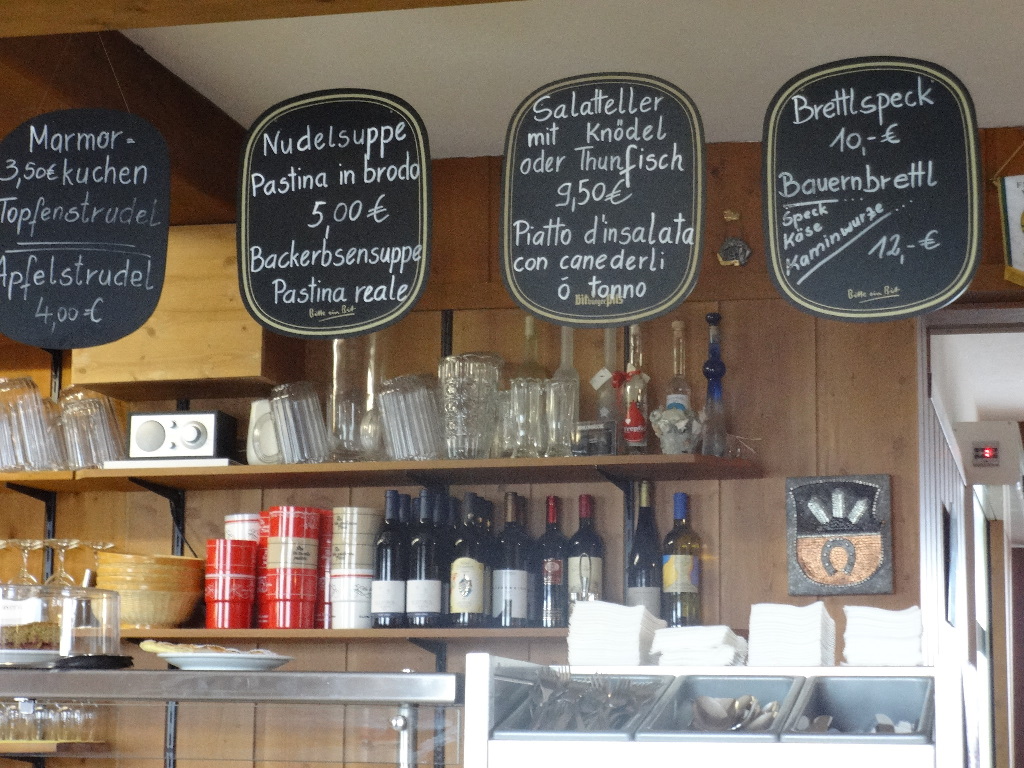 Marmor=
3,50€ kuchen
Topfenstrudel
Apfelstrudel
4,00 €
Nudelsuppe
Pastina in brodo
5,00 €
Backerbsensuppe
Pastina reale
Bitte ein Bit
Salatteller
mit Knödel
oder Thunfisch
9,50€
Piatto d'insalata
con canederli
ó tonno
Bitburger Pils
Brettlspeck
10,-€
Bauernbrettl
Speck
Käse
Kaminwurze
12,-€
Bitte ein Bit